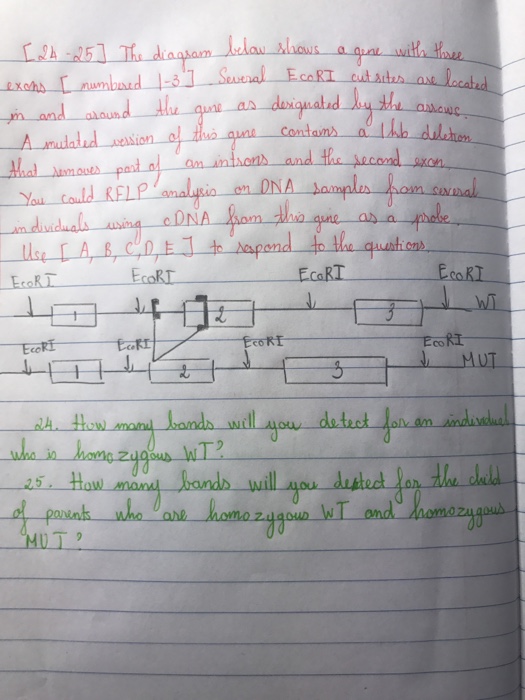 [24-25] The diagram below shows a gene with three
exons [ numbered 1-3]. Several EcoRI cut sites are located
in and around the gene as designated by the arrows.
A mutated version of this gene contains a 1kb deletion
that removes part of an introns and the second exon.
You could RFLP analysis on DNA samples from several
individuals using cDNA from this gene as a probe.
Use [ A, B, C, D, E ] to respond to the questions.
EcoRI EcoRI EcoRI EcoRI
1 2 3 WT
EcoRI EcoRI EcoRI EcoRI
1 2 3 MUT
24. How many bands will you detect for an individual
who is homozygous WT?
25. How many bands will you detect for the child
of parents who are homozygous WT and homozygous
MUT?